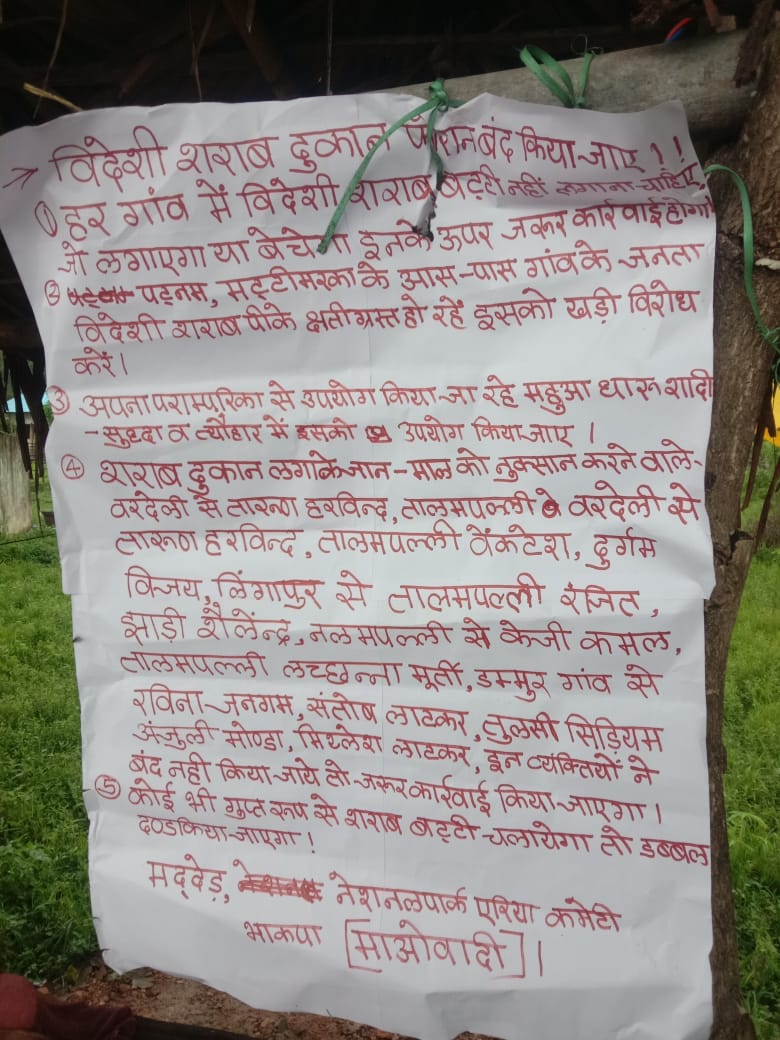 → विदेशी शराब दुकान बंद किया-जाए !!
① हर गांव में विदेशी शराब बट्टी नहीं लगाना-चाहिए,
जो लगाएगा या बेचेगा इनके ऊपर जरूर कार्रवाई होगी
② पटनम, मट्टीमरका के आस-पास गांव के जनता
विदेशी शराब पीके क्षतीग्रस्त हो रहें इसको खड़ी विरोध
करें।
③ अपना पराम्परिका से उपयोग किया-जा रहे महुआ धारू शादी
-सुध्दा व त्यौहार में इसको उपयोग किया-जाए ।
④ शराब दुकान लगाके जान-माल को नुक्सान करने वाले-
वरदेली से तारूण हरविन्द, तालमपल्ली वरदेली से
तारूण हरविन्द, तालमपल्ली वेंकटेश, दुर्गम
विजय, लिंगापुर से तालमपल्ली रंजित,
झाड़ी शैलेंन्द्र, नलमपल्ली से केजी कमल,
तालमपल्ली लच्छन्ना मूर्ती, डम्मुर गांव से
रविना-जनगम, संतोष लाटकर, तुलसी सिड़ियम
अंजुली मोण्डा, मिथ्लेश लाटकर, इन व्यक्तियों ने
बंद नहीं किया-जाये तो-जरूर कार्रवाई किया-जाएगा ।
⑤ कोई भी गुप्त रूप से शराब बट्टी-चलायेगा तो डब्बल
दण्ड किया-जाएगा !
मद्देड़, नेशनलपार्क एरिया कमेटी
भाकपा [माओवादी] ।